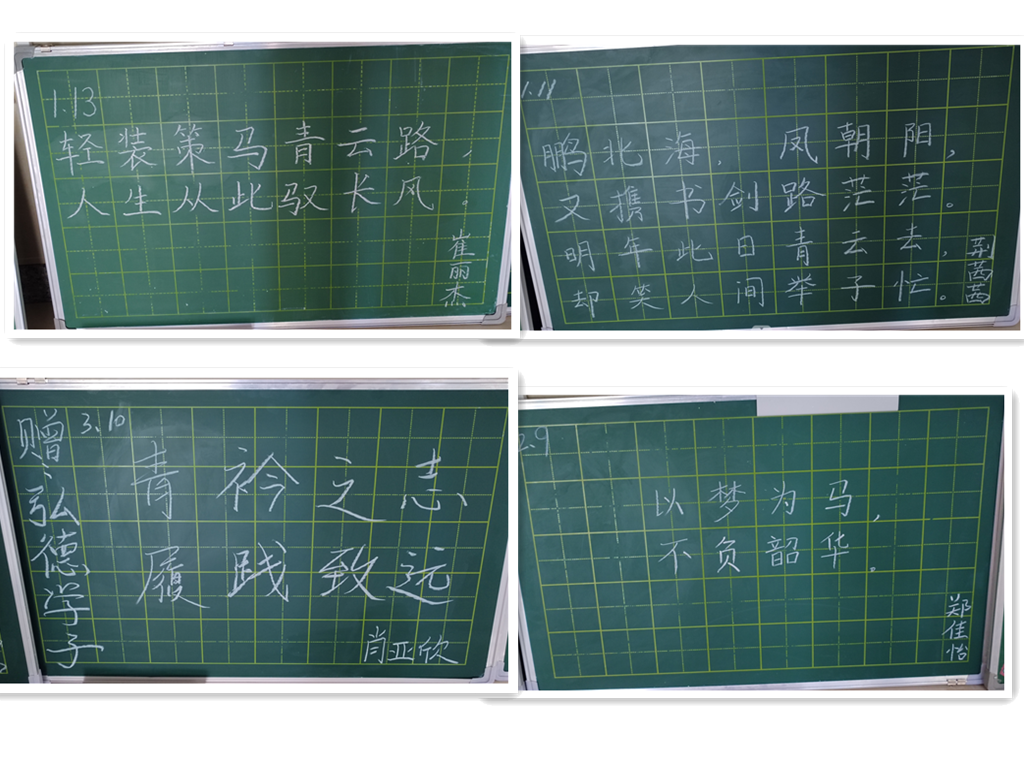 1.13
轻装策马青云路，
人生从此驭长风。
崔丽杰
1.11
鹏北海，凤朝阳，
又携书剑路茫茫。
明年此日青云去，
却笑人间举子忙。
荆茜茜
赠：弘德学子
3.10
青衿之志
履践致远
肖亚欣
2.9
以梦为马，
不负韶华。
郑佳怡